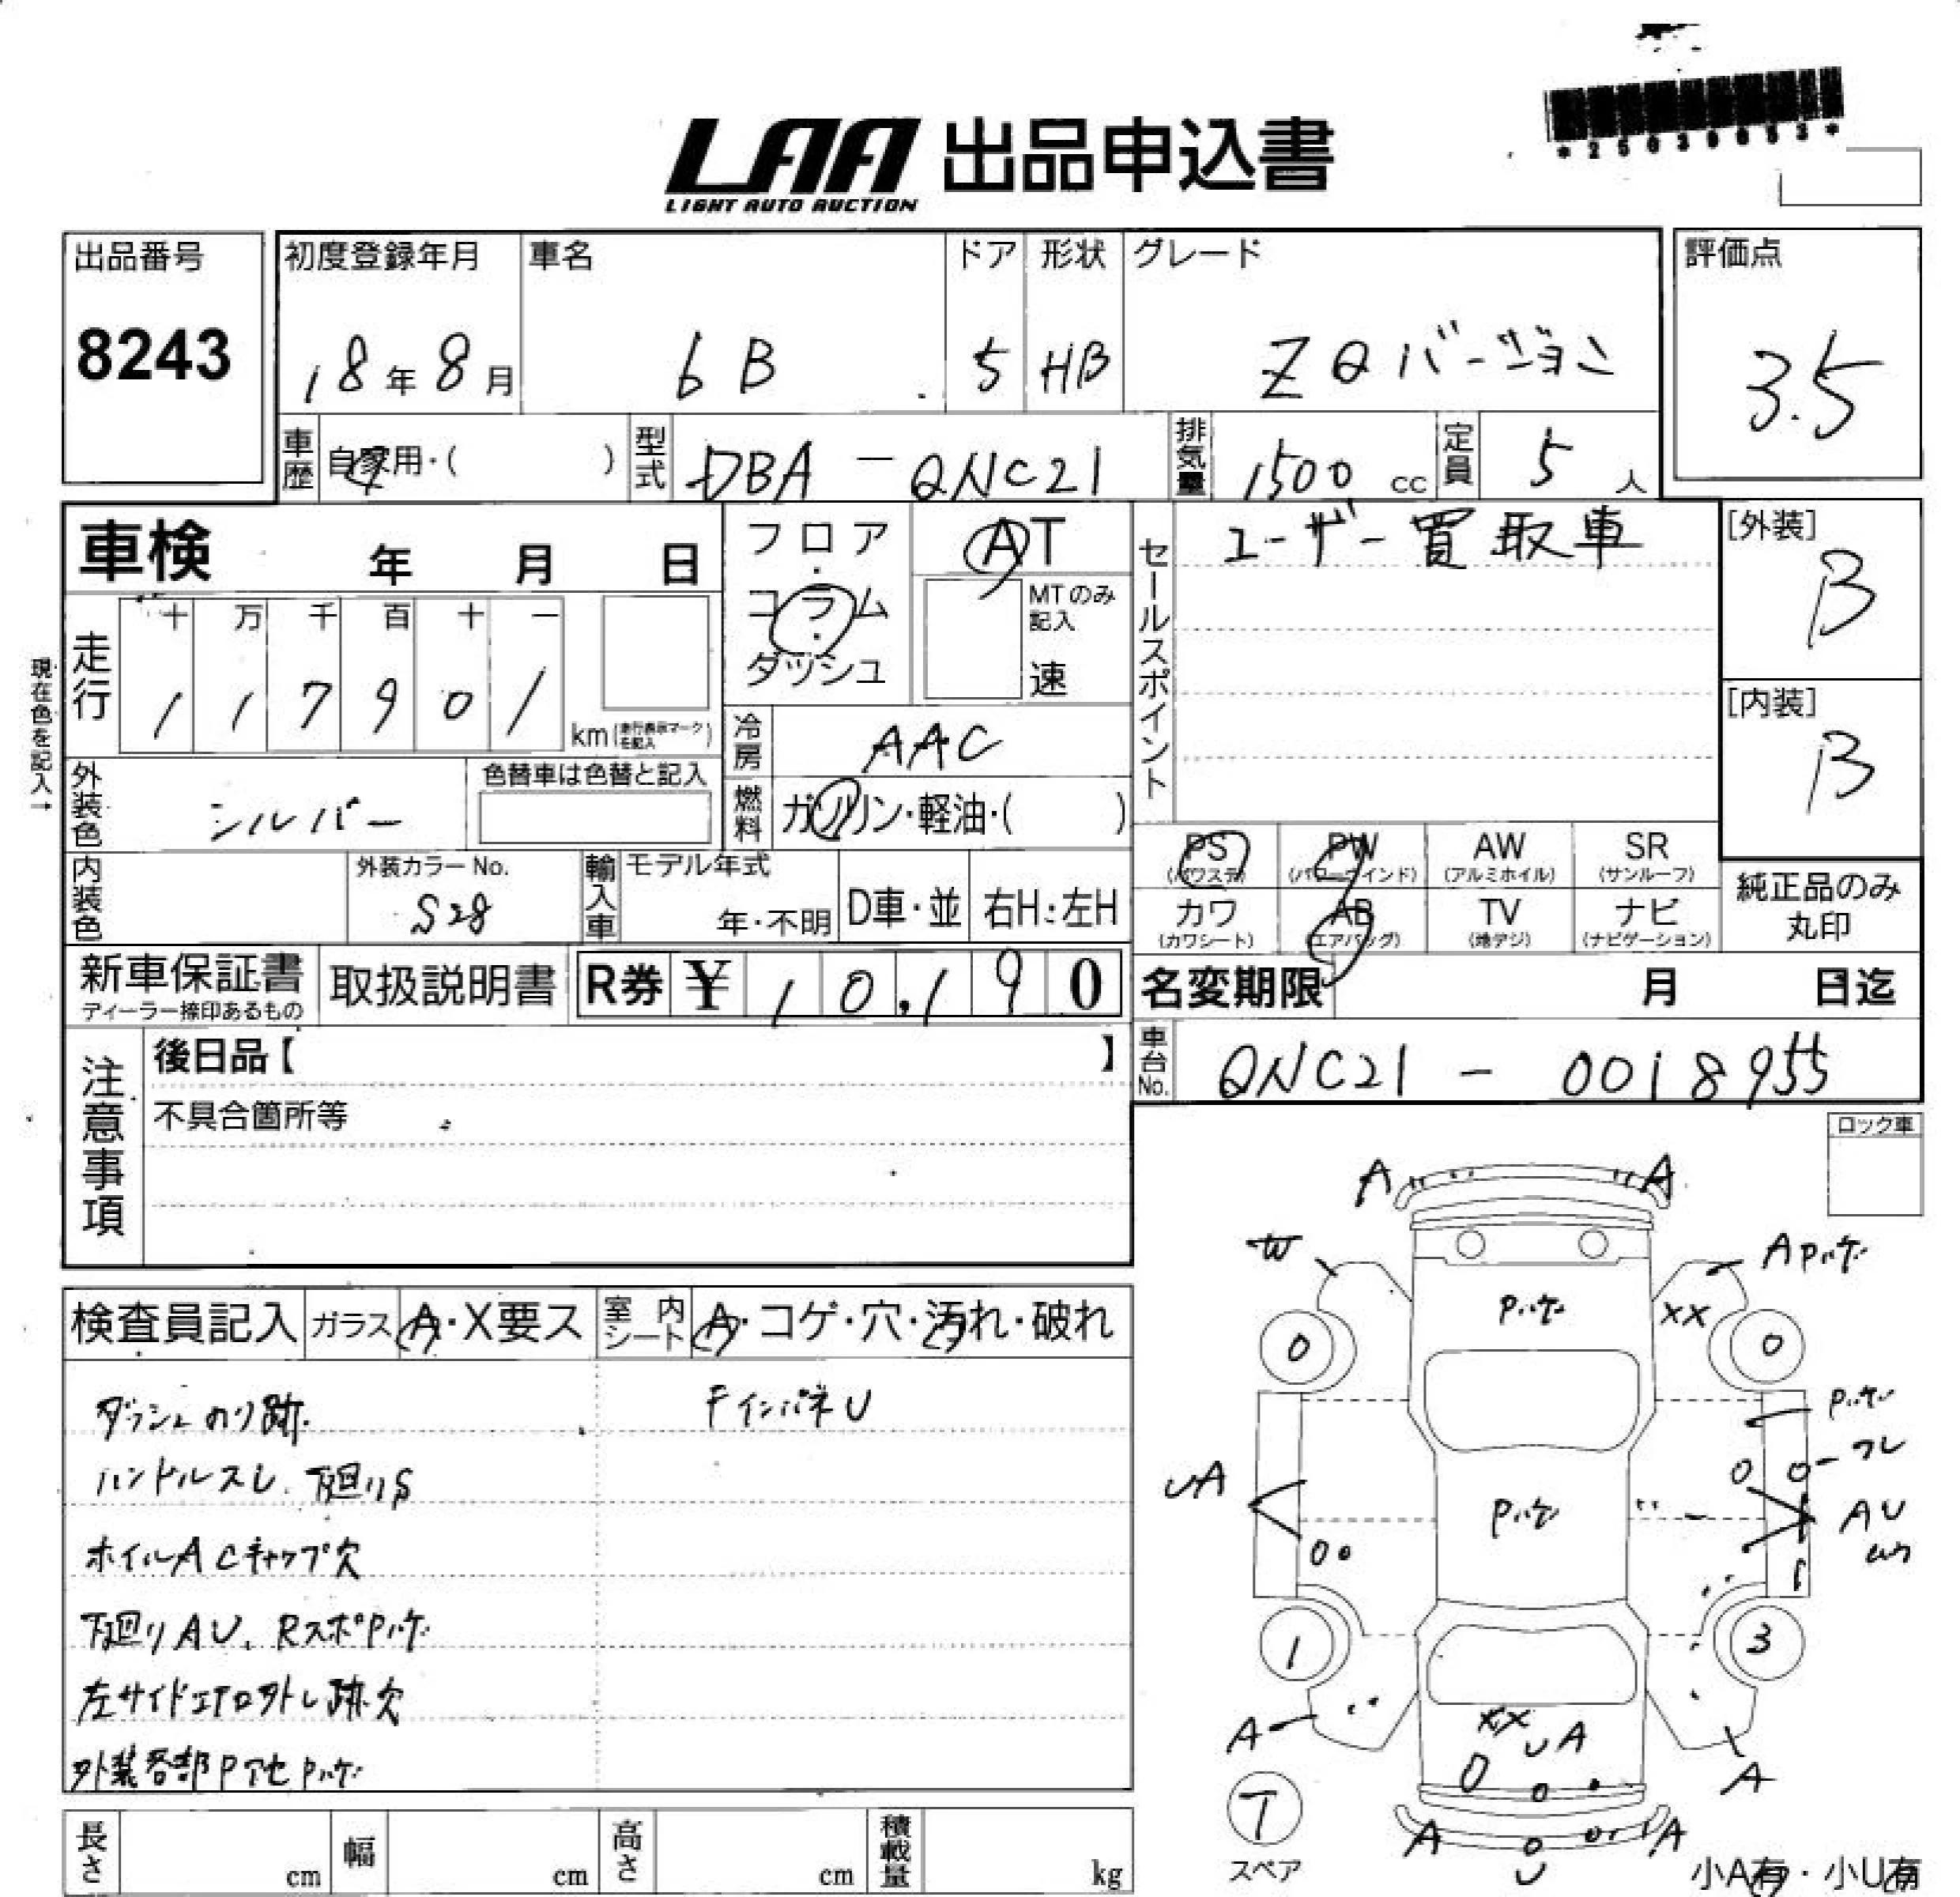 *25039053*
LAA 出品申込書
LIGHT AUTO AUCTION
出品番号
8243
初度登録年月
18年8月
車名
bB
ドア
5
形状
HB
グレード
ZQバージョン
評価点
3.5
車歴
自家用・( )
型式
DBA-QNC21
排気量
1500 cc
定員
5人
車検 年 月 日
フロア・コラム・ダッシュ
AT
MTのみ記入
速
セールスポイント
ユーザー買取車
[外装]
B
[内装]
B
現在色を記入→
走行
十 万 千 百 十 一
1 1 7 9 0 1
km(走行表示マークを記入)
冷房
AAC
外装色
シルバー
色替車は色替と記入
燃料
ガソリン・軽油・( )
PS
(パワステ)
PW
(パワーウインド)
AW
(アルミホイル)
SR
(サンルーフ)
カワ
(カワシート)
AB
(エアバッグ)
TV
(地デジ)
ナビ
(ナビゲーション)
純正品のみ
丸印
内装色
外装カラーNo.
S28
輸入車
モデル年式
年・不明
D車・並
右H・左H
新車保証書
ディーラー捺印あるもの
取扱説明書
R券 ¥ 10,190
名変期限 月 日迄
注意事項
後日品【 】
車台No.
QNC21-0018955
不具合箇所等
ロック車
検査員記入
ガラス
A・X要ス
室内シート
A・コゲ・穴・汚れ・破れ
ダッシュのり跡
FインパネU
ハンドルスレ. 下廻りS
ホイルA Cキャップ欠
下廻りAU. RスポPハゲ
左サイドエアロ外レ跡欠
外装各部PアセPハゲ
A A
W
A Pハゲ
Pハゲ
XX
0 0
Pハゲ
UA
Pハゲ
AU
1 3
A
XX
UA
A
T
スペア
A A
U
小A有・小U有
長さ cm
幅 cm
高さ cm
積載量 kg